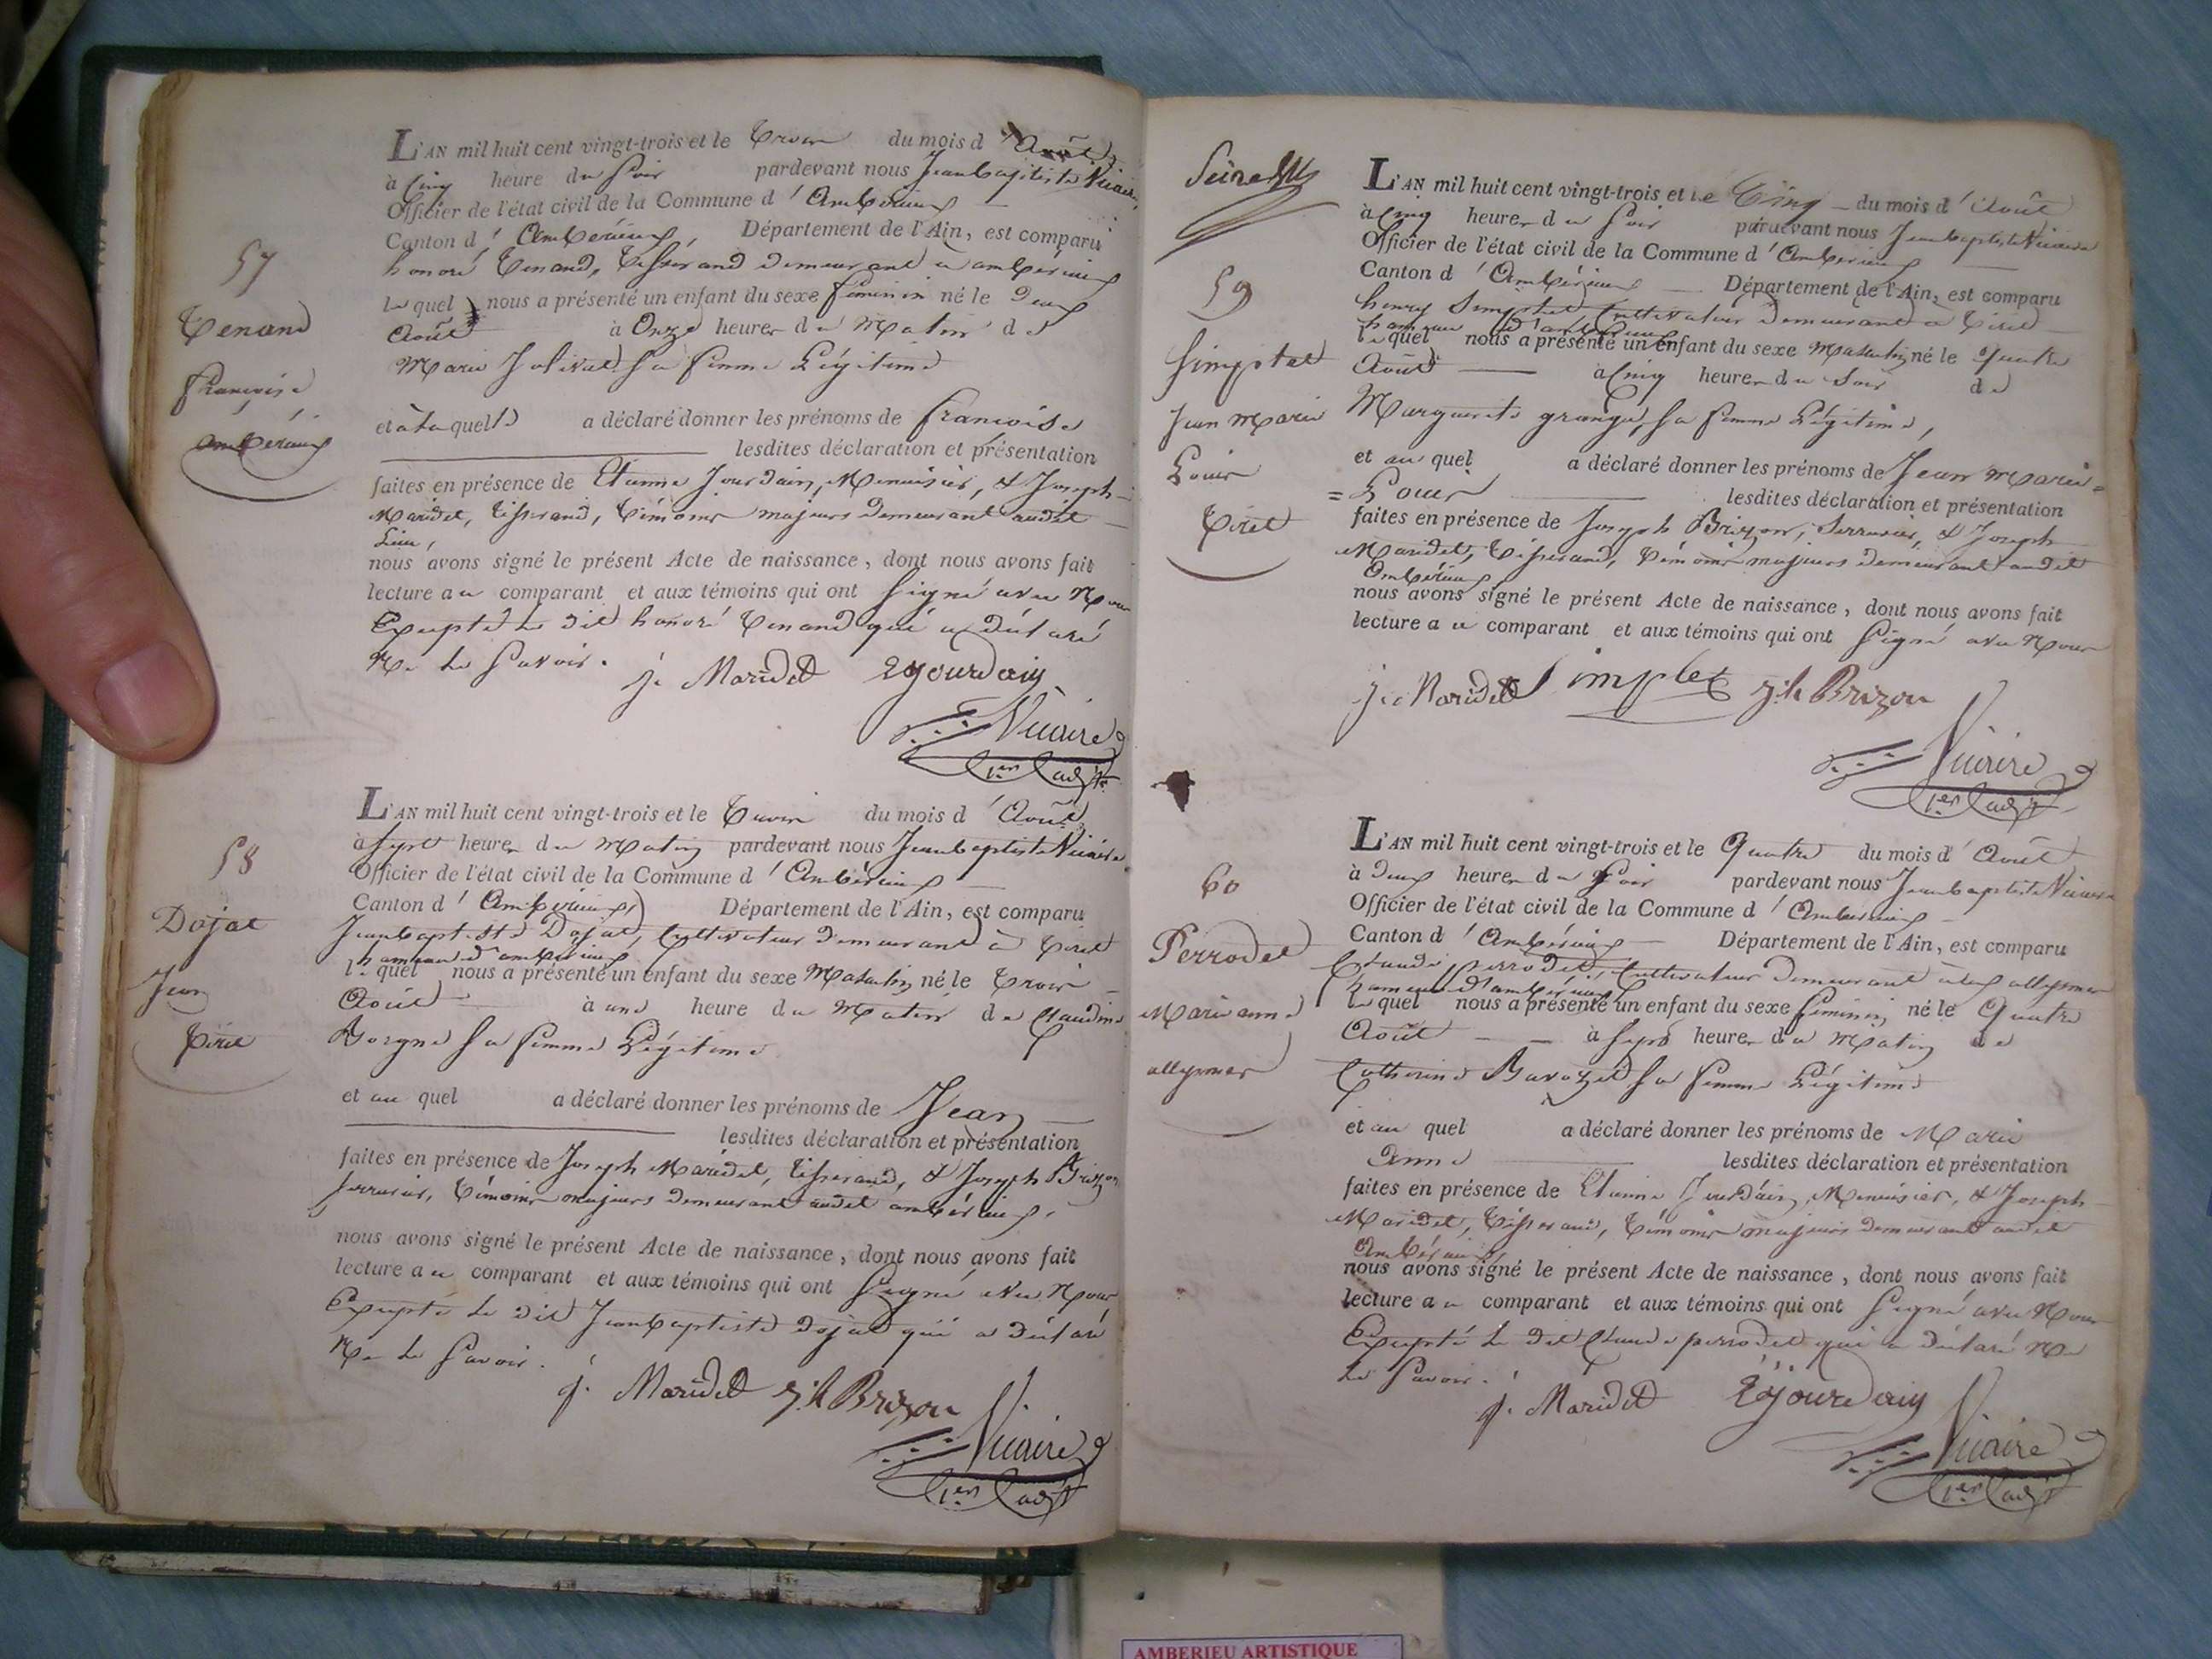 57
Tenand
françoise
ambérieux
L'AN mil huit cent vingt-trois et le Trois du mois d'Août
à Cinq heure du Soir pardevant nous Jean baptiste Vicaire,
Officier de l'état civil de la Commune d'Ambérieux
Canton d'Ambérieux, Département de l'Ain, est comparu
honoré Tenand, Tisserand demeurant à ambérieux
lequel nous a présenté un enfant du sexe féminin né le deux
Août à Onze heures du Matin de
Marie Jolivet sa femme Légitime
et à laquelle a déclaré donner les prénoms de françoise
lesdites déclaration et présentation
faites en présence de Etienne Jourdain, Menuisier, & Joseph
Maridet, Tisserand, Témoins majeurs demeurant audit
Lieu,
nous avons signé le présent Acte de naissance, dont nous avons fait
lecture au comparant et aux témoins qui ont Signé avec Nous
Excepté le dit honoré Tenand qui a déclaré
Ne le Savoir.
j. Maridet Ejourdain
Vicaire
1er adjt
58
Dojat
Jean
Tiret
L'AN mil huit cent vingt-trois et le Trois du mois d'Août,
à Sept heures du Matin pardevant nous Jean baptiste Vicaire
Officier de l'état civil de la Commune d'Ambérieux
Canton d'Ambérieux, Département de l'Ain, est comparu
Jean baptiste Dojat, Cultivateur demeurant à Tiret
hameau d'ambérieux
lequel nous a présenté un enfant du sexe Masculin né le Trois
Août à une heure du Matin de Claudine
Borgne sa femme Légitime
et au quel a déclaré donner les prénoms de Jean
lesdites déclaration et présentation
faites en présence de Joseph Maridet, Tisserand, & Joseph Brizon
Serrurier, Témoins majeurs demeurant audit ambérieux,
nous avons signé le présent Acte de naissance, dont nous avons fait
lecture au comparant et aux témoins qui ont Signé avec Nous
Excepté le dit Jean baptiste dojat qui a déclaré
Ne le Savoir.
j. Maridet j.h Brizon
Vicaire
1er adjt
59
Simplet
Jean Marie
Louis
Tiret
L'AN mil huit cent vingt-trois et le Cinq du mois d'Août
à Cinq heures du Soir pardevant nous Jean baptiste Vicaire
Officier de l'état civil de la Commune d'Ambérieux
Canton d'Ambérieux Département de l'Ain, est comparu
henry Simplet Cultivateur demeurant à Tiret
hameau d'ambérieux
lequel nous a présenté un enfant du sexe Masculin né le Quatre
Août à Cinq heures du Soir de
Marguerite grange, sa femme Légitime,
et au quel a déclaré donner les prénoms de Jean Marie=
=Louis lesdites déclaration et présentation
faites en présence de Joseph Brizon, Serrurier, & Joseph
Maridet, Tisserand, Témoins majeurs demeurant audit
Ambérieux
nous avons signé le présent Acte de naissance, dont nous avons fait
lecture au comparant et aux témoins qui ont Signé avec Nous
j. Maridet Simplet j.h Brizon
Vicaire
1er adjt
60
Perrodet
Marianne
allymes
L'AN mil huit cent vingt-trois et le Quatre du mois d'Août
à deux heures du Soir pardevant nous Jean baptiste Vicaire
Officier de l'état civil de la Commune d'Ambérieux
Canton d'Ambérieux Département de l'Ain, est comparu
Claude perrodet, Cultivateur demeurant aux allymes
hameau d'ambérieux
lequel nous a présenté un enfant du sexe féminin né le Quatre
Août à Sept heures du Matin de
Catherine Bavozet sa femme Légitime
et au quel a déclaré donner les prénoms de Marie
Anne lesdites déclaration et présentation
faites en présence de Etienne Jourdain, Menuisier, & Joseph
Maridet, Tisserand, Témoins majeurs demeurant audit
Ambérieux,
nous avons signé le présent Acte de naissance, dont nous avons fait
lecture au comparant et aux témoins qui ont Signé avec Nous
Excepté le dit Claude perrodet qui a déclaré Ne
le Savoir.
j. Maridet Ejourdain
Vicaire
1er adjt
AMBERIEU ARTISTIQUE